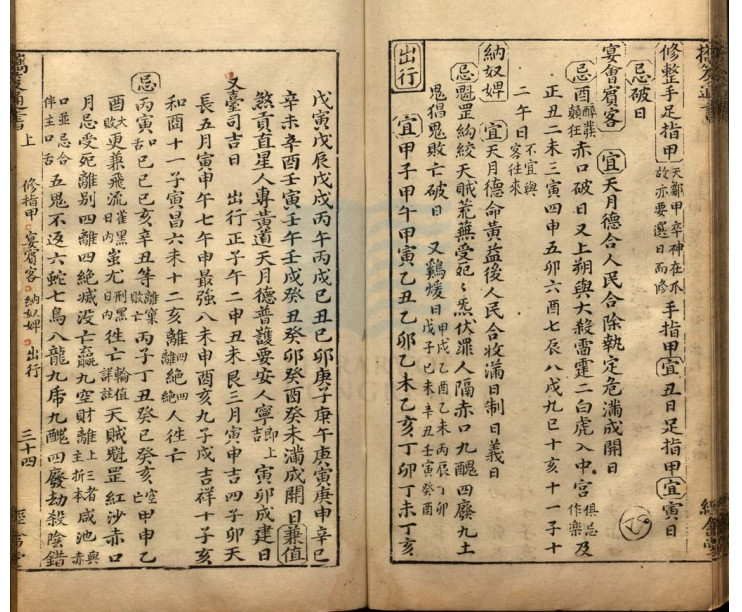 修整手足指甲 天鄰甲卒神在爪故亦要選日而修 手指甲宜丑日足指甲宜寅日
忌破日
宴會賓客 宜天月德合人民合除執定危滿成開日
忌酉 赤口破日又上朔與大殺雷霆二白虎入中宮俱忌作樂及
正丑二未三寅四申五卯六酉七辰八戌九巳十亥十一子十
二午日不宜與客往來
納奴婢 宜天月德命黃益後人民合收滿日制日義日
忌魁罡絞天賊荒蕪受死伏罪人隔赤口九醜四廢九土
鬼猖鬼敗亡破日 又鷄煖日甲戌乙酉乙未丙辰丁卯戊子己未辛丑壬寅癸酉
出行 宜甲子甲午甲寅乙丑乙卯乙未乙亥丁卯丁未丁亥
戊寅戊辰戊戌丙午丙戌己丑己卯庚子庚午庚寅庚申辛巳
辛未辛酉壬寅壬午壬戌癸丑癸卯癸酉癸未滿成開日兼值
煞貢直星人專黃道天月德普護要安人寧即上吉寅卯成建日
又臺司吉日 出行正子午二申丑未艮三月寅申吉四子卯天
長五月寅申午七午申最強八未申酉亥九子戌吉祥十子亥
和商十一子寅昌六未十二亥離四離絕四絕人徃亡
忌丙寅古己巳己亥辛丑等離窠敗亡丙子丁丑癸巳癸亥空亡甲申乙
酉大敗更兼飛流雀黑日內蚩尤刑黑日內徃亡輪值詳註天賊魁罡紅沙赤口
月忌受死離別四離四絕滅没亡羸九空財離上三者主折本咸池與赤
口並忌合伴主口舌五鬼不返六蛇七鳥八龍九虎九醜四廢劫殺陰錯
上 修指甲 宴賓客 納奴婢 出行 三十四